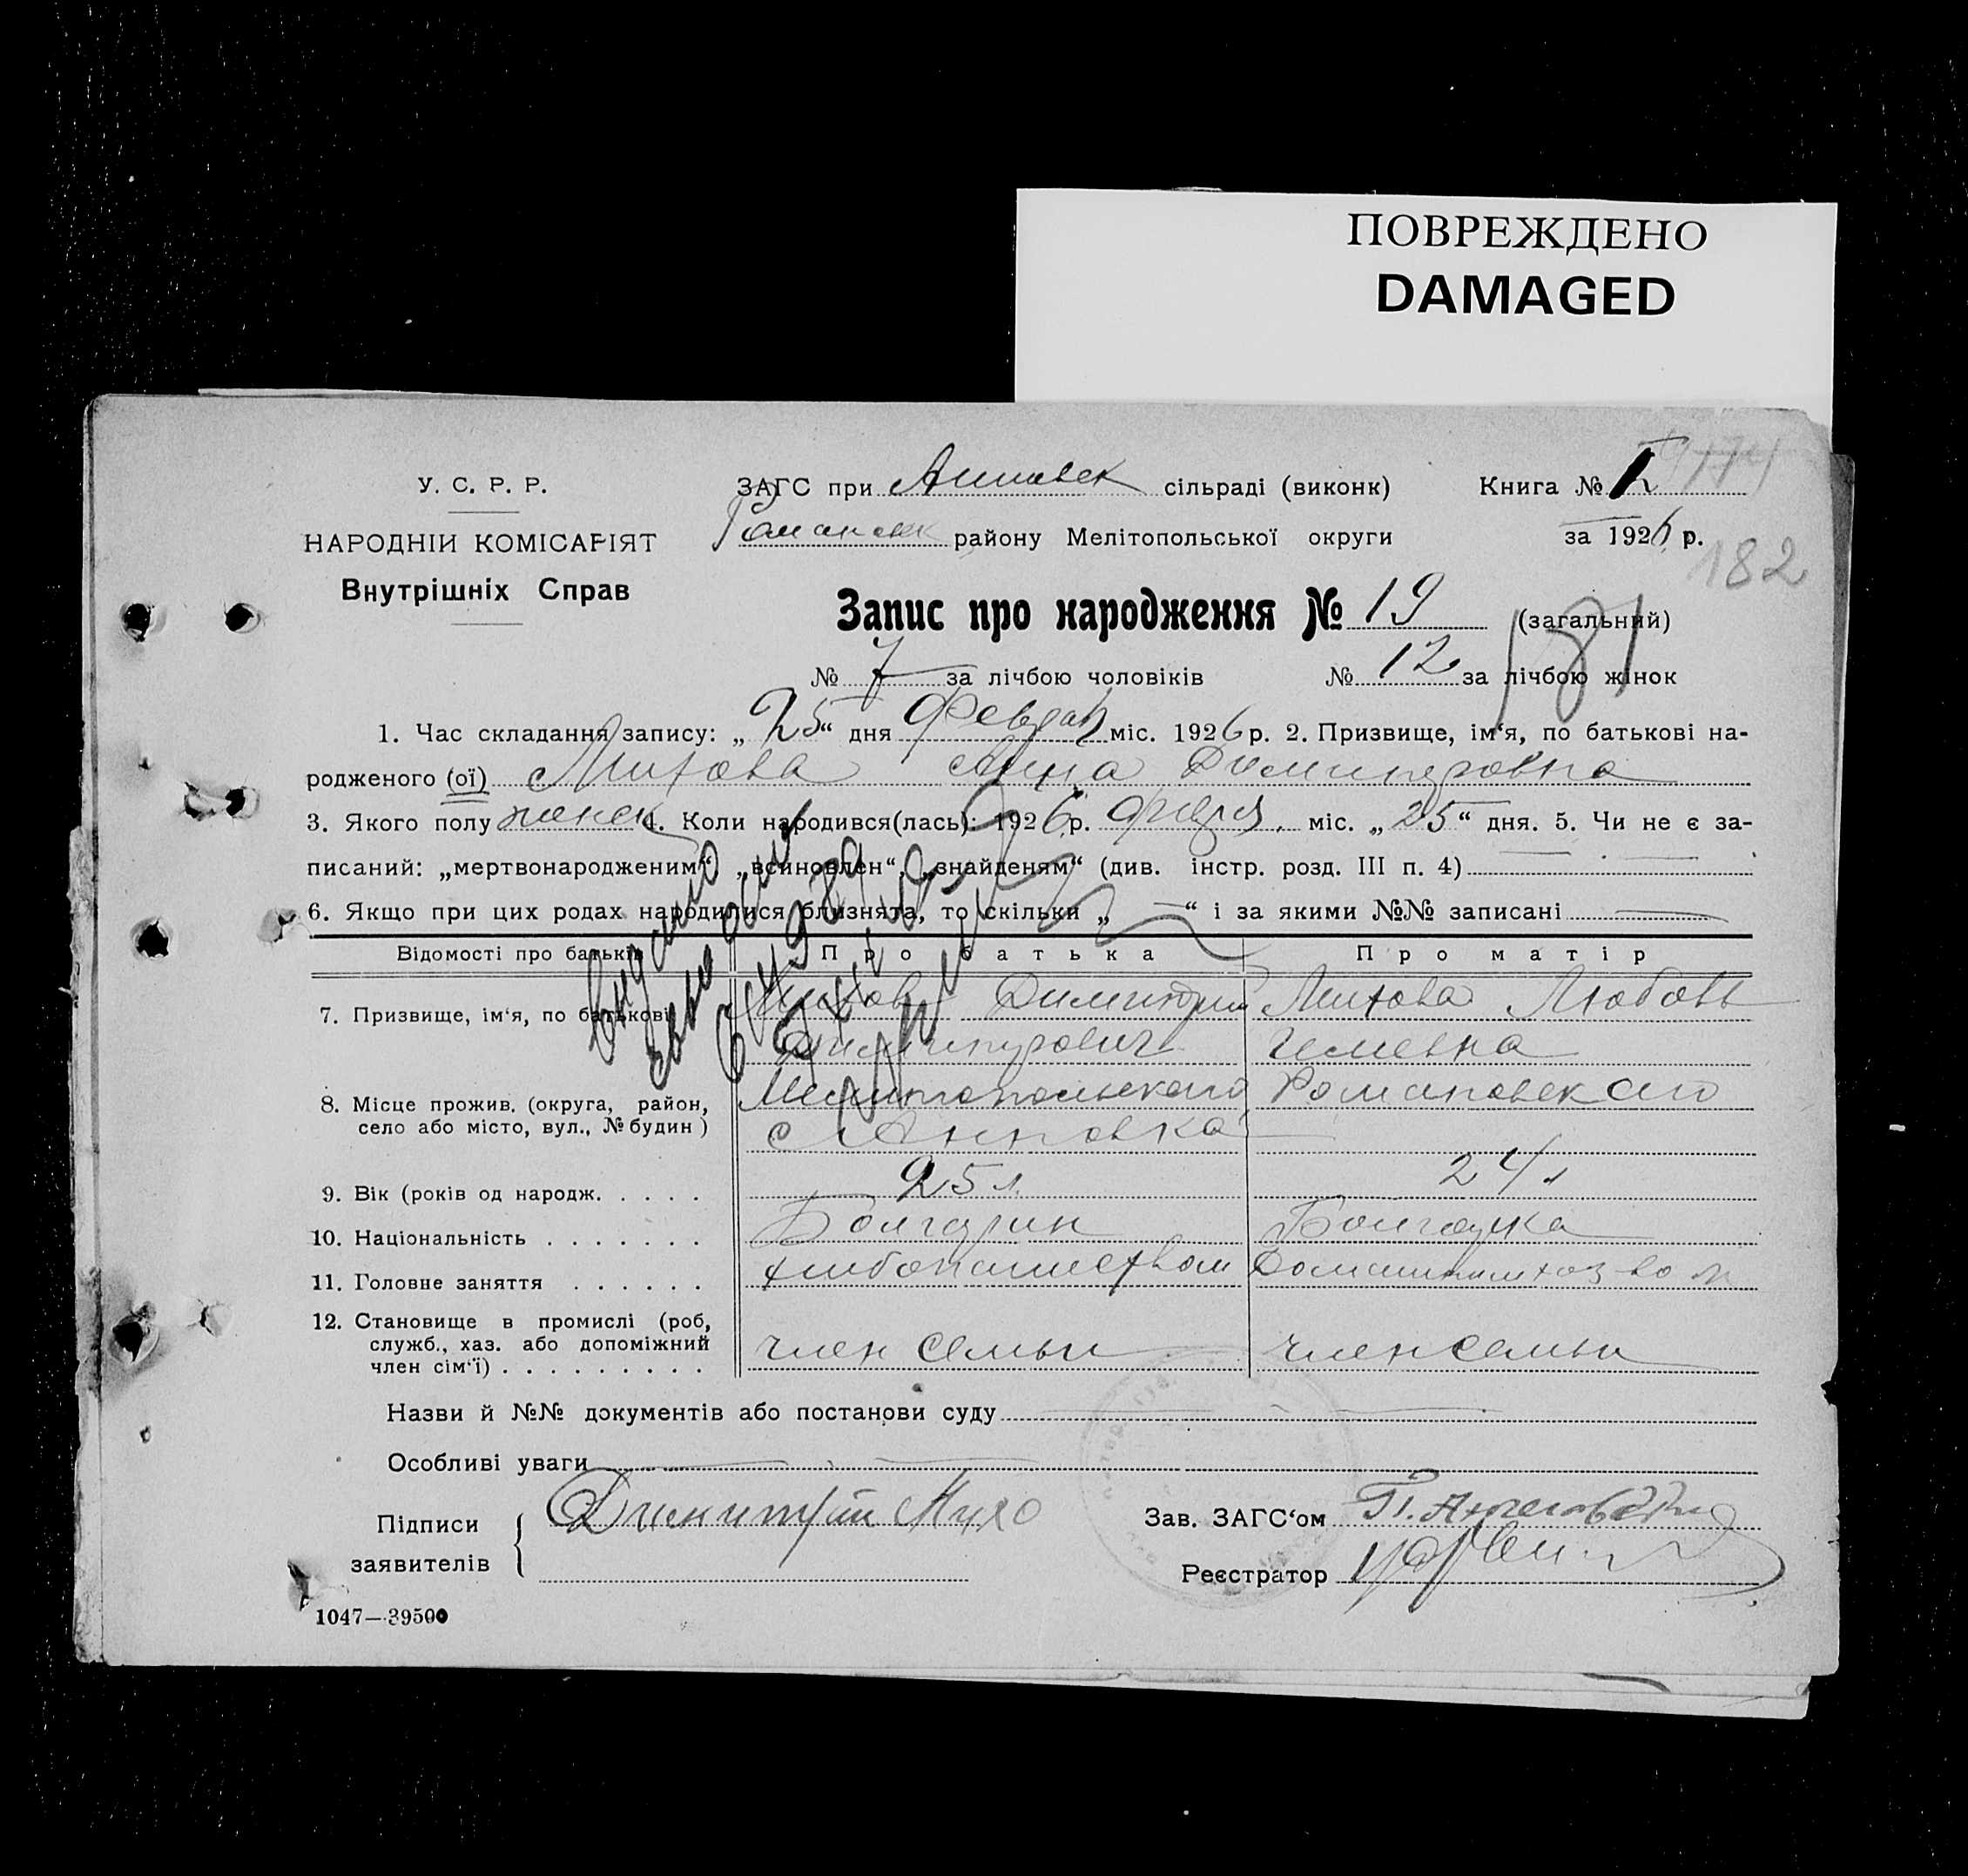 ПОВРЕЖДЕНО
DAMAGED
У. С. Р. Р.
НАРОДНІИ КОМІСАРІЯТ
Внутрішніх Справ
ЗАГС при Анновск сільраді (виконк)
Романовск району Мелітопольської округи
Книга № I
за 1926 р.
182
Запис про народження № 19 (загальний)
181
№ 7 за лічбою чоловіків № 12 за лічбою жінок
1. Час складання запису: „25“ дня Феврал міс. 1926 р. 2. Призвище, ім‘я, по батькові на-
родженого (ої) Митова Анна Димитровна
3. Якого полу женск 4. Коли народився(лась): 1926 р. Феврл. міс. „25“ дня. 5. Чи не є за-
писаний: „мертвонародженим“ „всиновлен“, „знайденям“ (див. інстр. розд. III п. 4)
6. Якщо при цих родах народилися близнята, то скільки „—“ і за якими №№ записані
Відомості про батьків Про батька Про матір
7. Призвище, ім‘я, по батькові Митов Димитрий Митова Любовь
Димитрович
8. Місце прожив. (округа, район, село або місто, вул., № будин) Мелитопольского Романовского
с Анновка
9. Вік (років од народж. . . . . 25 л. 24 л
10. Національність . . . . . . . Болгарин Болгарка
11. Головне заняття . . . . . . хлибопашеством Домашним хоз-вом
12. Становище в промислі (роб, служб., хаз. або допоміжний член сім‘ї) . . . . . . . . . член семьи член семьи
Назви й №№ документів або постанови суду
Особливі уваги
Підписи заявителів Димитрий
Зав. ЗАГС‘ом
Реєстратор
1047—39500